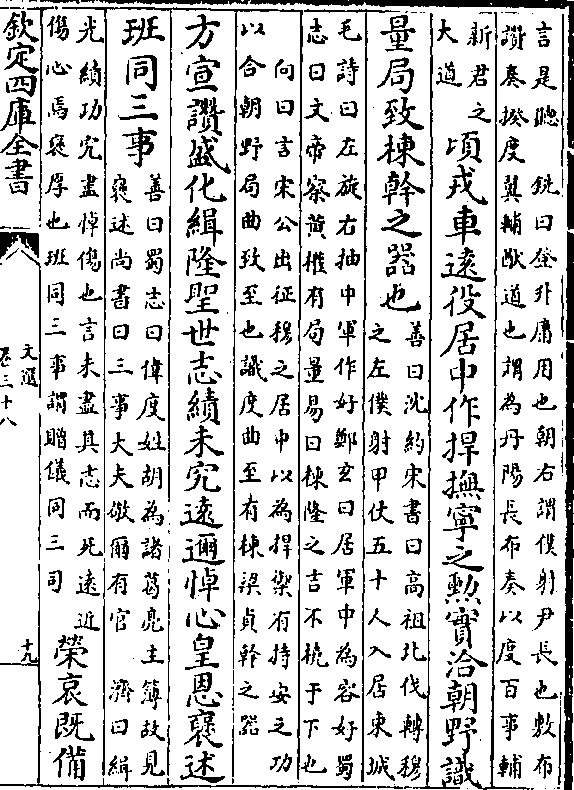 言是聽　銑曰登外庸用也朝右謂僕射尹長也敷布
讚奏揆度翼輔猷道也謂為丹陽長布奏以度百事輔
新君之
大道
頃戎車遠役居中作捍撫寧之勲實洽朝野識
量局致棟幹之器也
善曰沈約宋書曰高祖北伐轉穆
之左僕射甲仗五十人入居東城
毛詩曰左旋右抽中軍作好鄭玄曰居軍中為容好蜀
志曰文帝察黄權有局量易曰棟隆之吉不橈于下也
向曰言宋公出征穆之居中以為捍禦有持安之功
以合朝野局曲致至也識度曲至有棟梁貞幹之器
方宣讚盛化緝隆聖世志績未究遠邇悼心皇恩襃述
班同三事
善曰蜀志曰偉度姓胡為諸葛亮主簿故見
襃述尚書曰三事大夫儆爾有官　濟曰緝
光績功究盡悼傷也言未盡其志而死遠近
傷心焉襃厚也班同三事謂贈儀同三司
榮哀既備
欽定四庫全書
文選
卷三十八
十九